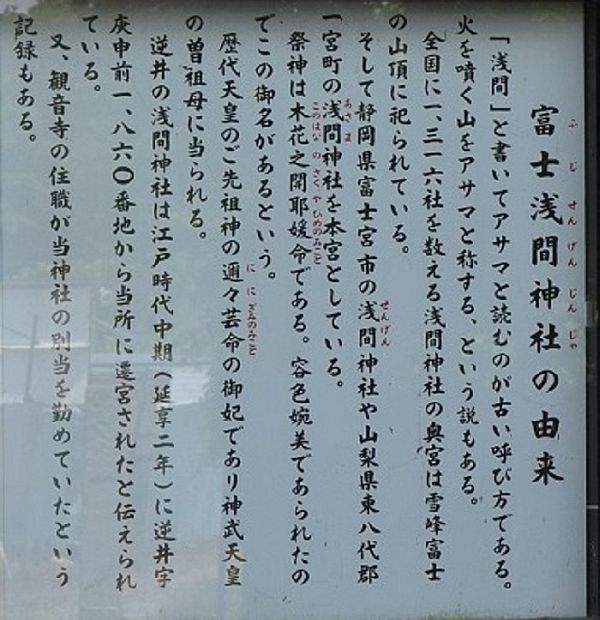 富士浅間神社の由来
ふじせんげんじんじゃ
「浅間」と書いてアサマと読むのが古い呼び方である。
火を噴く山をアサマと称する、という説もある。
全国に一、三一六社を数える浅間神社の奥宮は雪峰富士
の山頂に祀られている。
そして静岡県富士宮市の浅間神社や山梨県東八代郡
せんげん
一宮町の浅間神社を本宮としている。
あさま
祭神は木花之開耶媛命である。容色婉美であられたの
このはなのさくやひめのみこと
でこの御名があるという。
歴代天皇のご先祖神の邇々芸命の御妃であり神武天皇
ににぎみのみこと
の曽祖母に当られる。
逆井の浅間神社は江戸時代中期(延享二年)に逆井字
庚申前一、八六〇番地から当所に遷宮されたと伝えられ
ている。
又、観音寺の住職が当神社の別当を勤めていたという
記録もある。